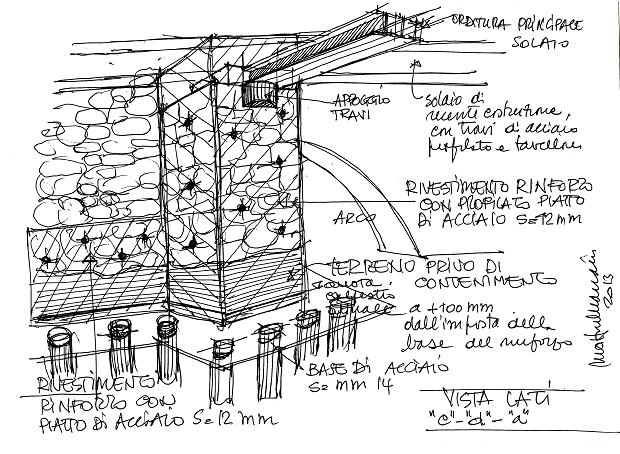 ORDITURA PRINCIPALE
SOLAIO
APPOGGIO
TRAVI
solaio di
recente costruzione,
con travi di acciaio
profilato e tavelloni
RIVESTIMENTO RINFORZO
CON PROFILATO PIATTO
DI ACCIAIO S=12mm
ARCO
TERRENO PRIVO DI
CONTENIMENTO
calpestio
attuale
a +100 mm
dall'imposta della
base del rinforzo
2013
BASE DI ACCIAIO
S= mm 14
RIVESTIMENTO
RINFORZO CON
PIATTO DI ACCIAIO S=12 mm
VISTA LATI
"c"-"d"-"a"